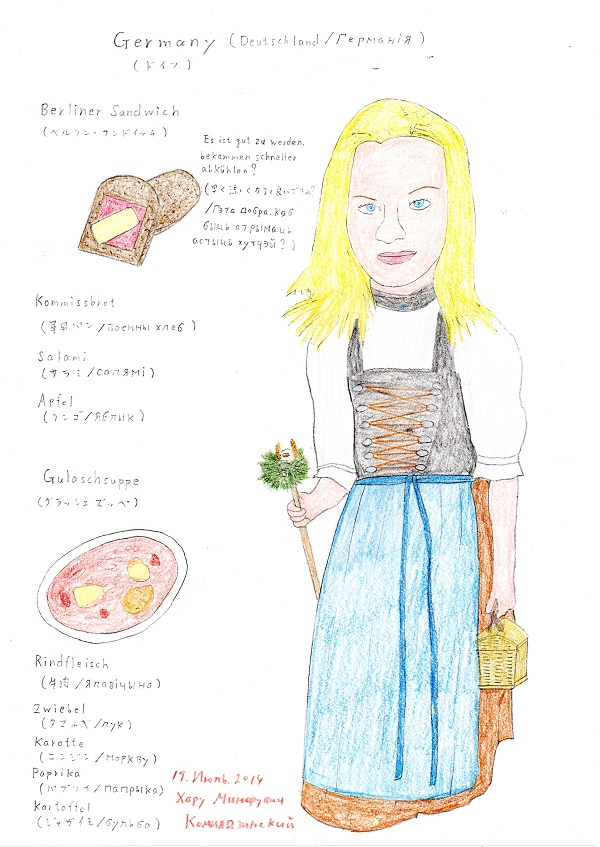 Germany (Deutschland/Германія)
(ドイツ)
Berliner Sandwich
(ベルリン・サンドイッチ)
Es ist gut zu werden,
bekommen schneller
abkühlen?
(早く涼しくなると良いですね?
/Гэта добра, каб
быць атрымаць
астыць хутчэй?)
Kommissbrot
(軍用パン/военны хлеб)
Salami
(サラミ/салямі)
Apfel
(リンゴ/яблык)
Gulaschsuppe
(グラッシュズッペ)
Rindfleisch
(牛肉/ялавічына)
Zwiebel
(タマネギ/лук)
Karotte
(ニンジン/моркву)
Paprika
(パプリカ/папрыка)
Kartoffel
(ジャガイモ/бульба)
Июль 2014
Хару Минарувич